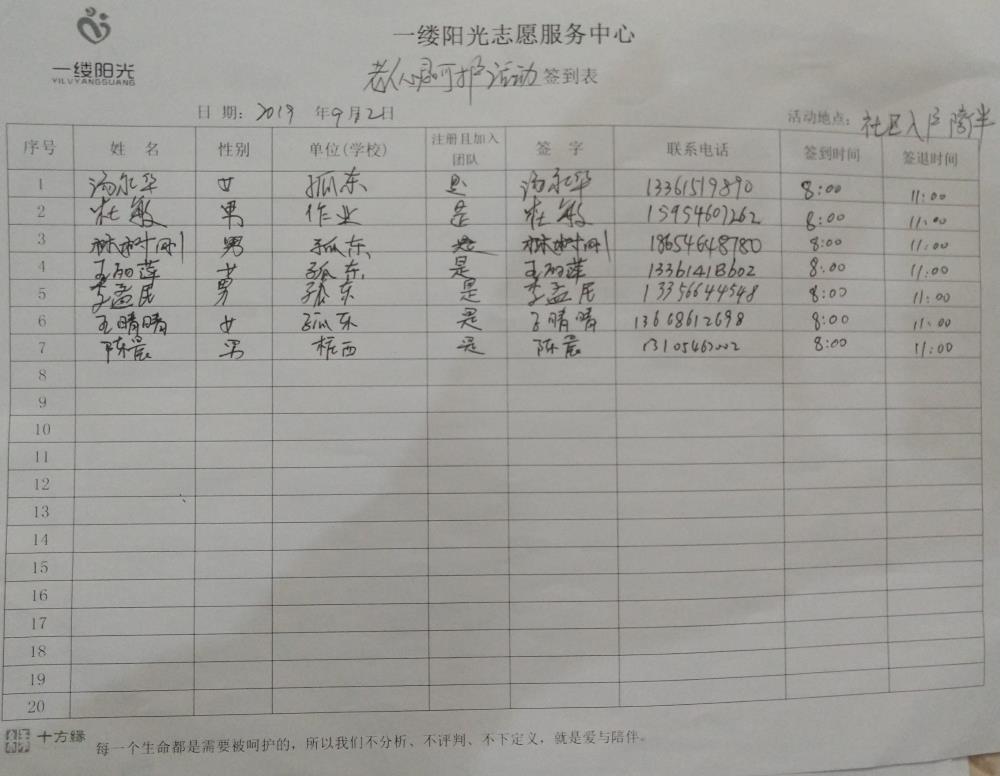 一缕阳光
YILUYANGGUANG
一缕阳光志愿服务中心
老人心灵呵护活动签到表
日期：2019年9月2日 活动地点：社区入户陪伴
序号 姓名 性别 单位(学校) 注册且加入团队 签字 联系电话 签到时间 签退时间
1 汤永华 女 孤东 是 汤永华 13361519890 8:00 11:00
2 杜敏 男 作业 是 杜敏 15954607262 8:00 11:00
3 林树刚 男 孤东 是 林树刚 18654648780 8:00 11:00
4 王丽莲 女 孤东 是 王丽莲 8:00 11:00
5 李孟民 男 孤东 是 李孟民 13356644548 8:00 11:00
6 王晴晴 女 孤东 是 王晴晴 13668612698 8:00 11:00
7 陈晨 男 桩西 是 陈晨 8:00 11:00
8
9
10
11
12
13
14
15
16
17
18
19
20
十方缘 每一个生命都是需要被呵护的，所以我们不分析、不评判、不下定义，就是爱与陪伴。